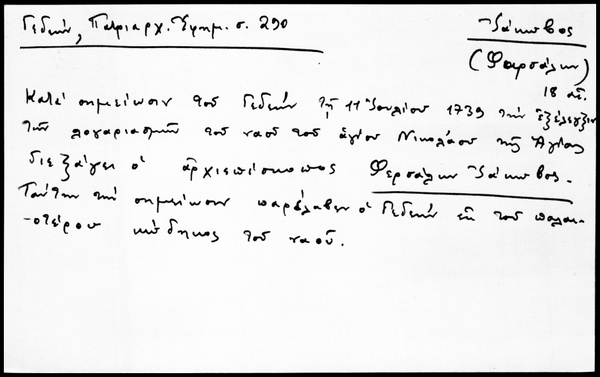 Γεδεών, Πατριαρχ. Ἐφημ. σ. 290
Ἰάκωβος
(Φαρσάλων)
18 αἰ.
Κατά σημείωσιν τοῦ Γεδεών τῇ 11 Ἰουλίου 1739 τήν ἐξέλεγξιν
τῶν λογαριασμῶν τοῦ ναοῦ τοῦ ἁγίου Νικολάου τῆς Ἁγίας
διεξάγει ὁ ἀρχιεπίσκοπος Φερσάλων Ἰάκωβος.
Ταύτην τήν σημείωσιν παρέλαβεν ὁ Γεδεών ἐκ τοῦ παλαι-
-οτέρου κώδηκος τοῦ ναοῦ.